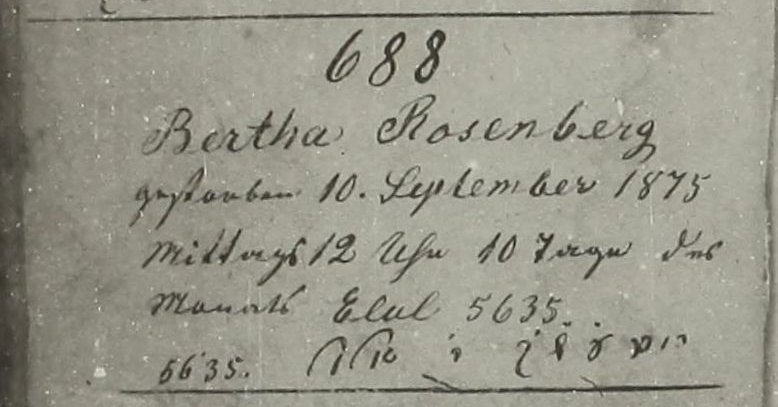 688
Bertha Rosenberg
gestorben 10. September 1875
Mittags 12 Uhr 10 Tage des
Monats Elul 5635.
5635.